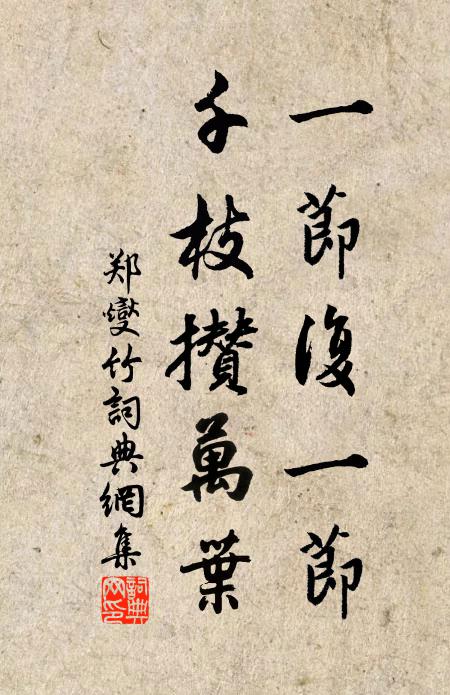 一節復一節
千枝攢萬葉
郑燮竹詞典網集
詞典
网印